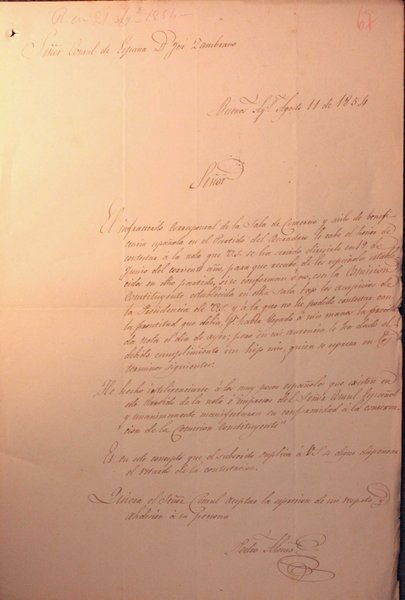 R. en 21 Ag.to 1854
67
Señor Consul de España D.n José Zambrano
Buenos Ay.s Agosto 11 de 1854
Señor
El infraescrito Corresponsal de la Sala de Comercio y asilo de benefi-
cencia española en el Partido del le cabe el honor de
contestar a la nota que V.S. se ha servido dirigirle en 19 de
Junio del corriente año, para que recabe de los españoles estable-
cidos en dicho partido, si se conforman o no, con la Comision
Constituyente establecida en dicha Sala bajo los auspicios de
la Presidencia de V.S. y à la que no he podido contestar con
la prontitud que debia, p.r haber llegado à mis manos la precita-
da nota el dia de ayer; pero en mi ausencia le ha dado el
debido cumplimiento un hijo mio, quien se expresa en los
terminos siguientes:
"He hecho inteligenciarse à los muy pocos españoles que existen en
este Partido de la nota é impresos del Señor Consul Español
y unanimemente manifestaron su conformidad à la conserva-
cion de la Comision Constituyente"
Es en este concepto que el suscrito suplica à V.S. se digne dispensar
el retardo de la contestacion.
Quiera el Señor Consul aceptar la espresion de mi respeto y
adhesion à su persona
Pedro Alonso